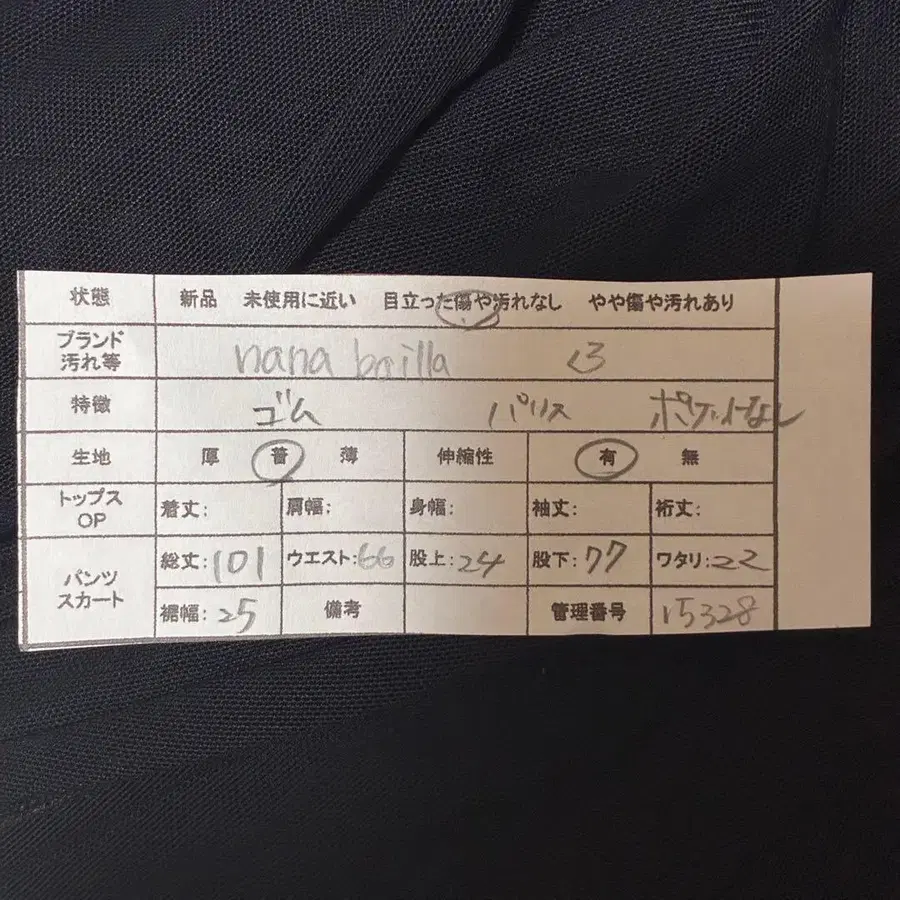 状態 新品 未使用に近い 目立った傷や汚れなし やや傷や汚れあり
ブランド
汚れ等 nana bailla
特徴 ゴム パリス ポケットなし
生地 厚 普 薄 伸縮性 有 無
トップス
OP 着丈: 肩幅: 身幅: 袖丈: 裄丈:
パンツ
スカート 総丈:101 ウエスト:66 股上:24 股下:77 ワタリ:22
裾幅:25 備考 管理番号 15328